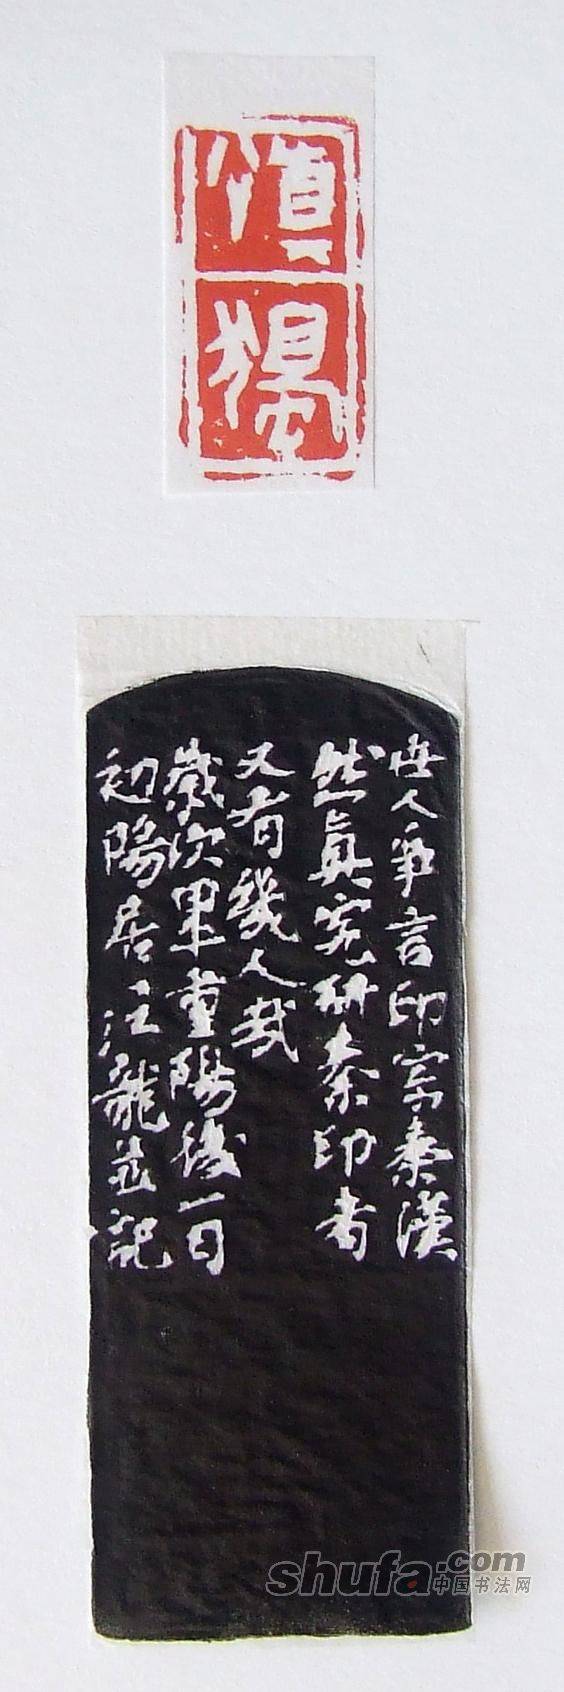 世人爭言印宗秦漢
然真究研秦印者
又有幾人哉
歲次畢重陽後一日
初陽居汪龍並記
shufa.com
中国书法网